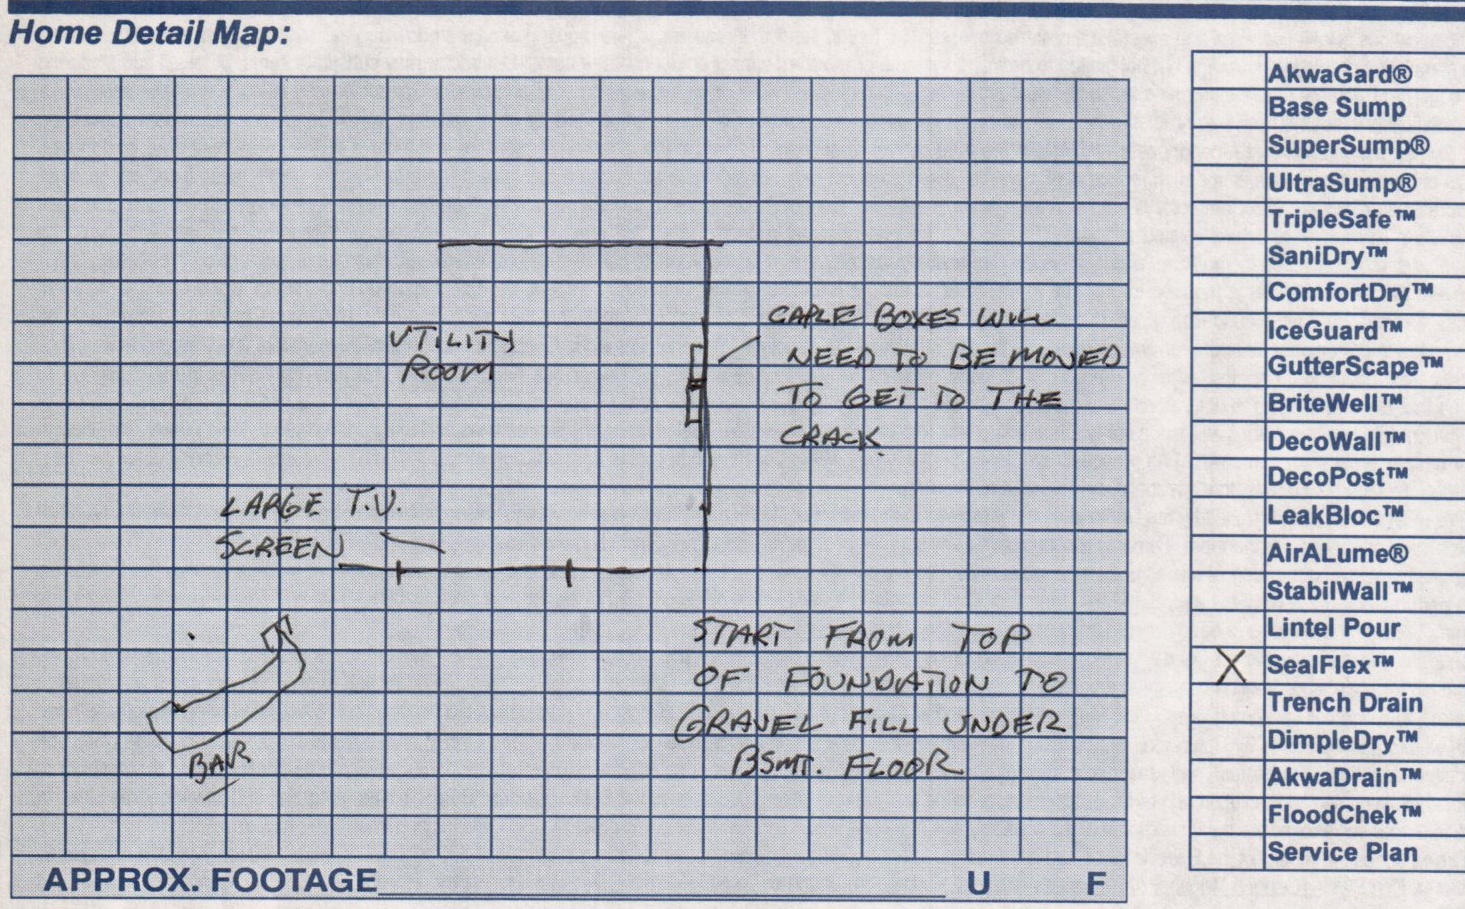 Home Detail Map:
UTILITY
ROOM
CABLE BOXES WILL
NEED TO BE MOVED
TO GET TO THE
CRACK.
LARGE T.V.
SCREEN
START FROM TOP
OF FOUNDATION TO
GRAVEL FILL UNDER
BSMT. FLOOR
BAR
APPROX. FOOTAGE U F
AkwaGard®
Base Sump
SuperSump®
UltraSump®
TripleSafe™
SaniDry™
ComfortDry™
IceGuard™
GutterScape™
BriteWell™
DecoWall™
DecoPost™
LeakBloc™
AirALume®
StabilWall™
Lintel Pour
X SealFlex™
Trench Drain
DimpleDry™
AkwaDrain™
FloodChek™
Service Plan